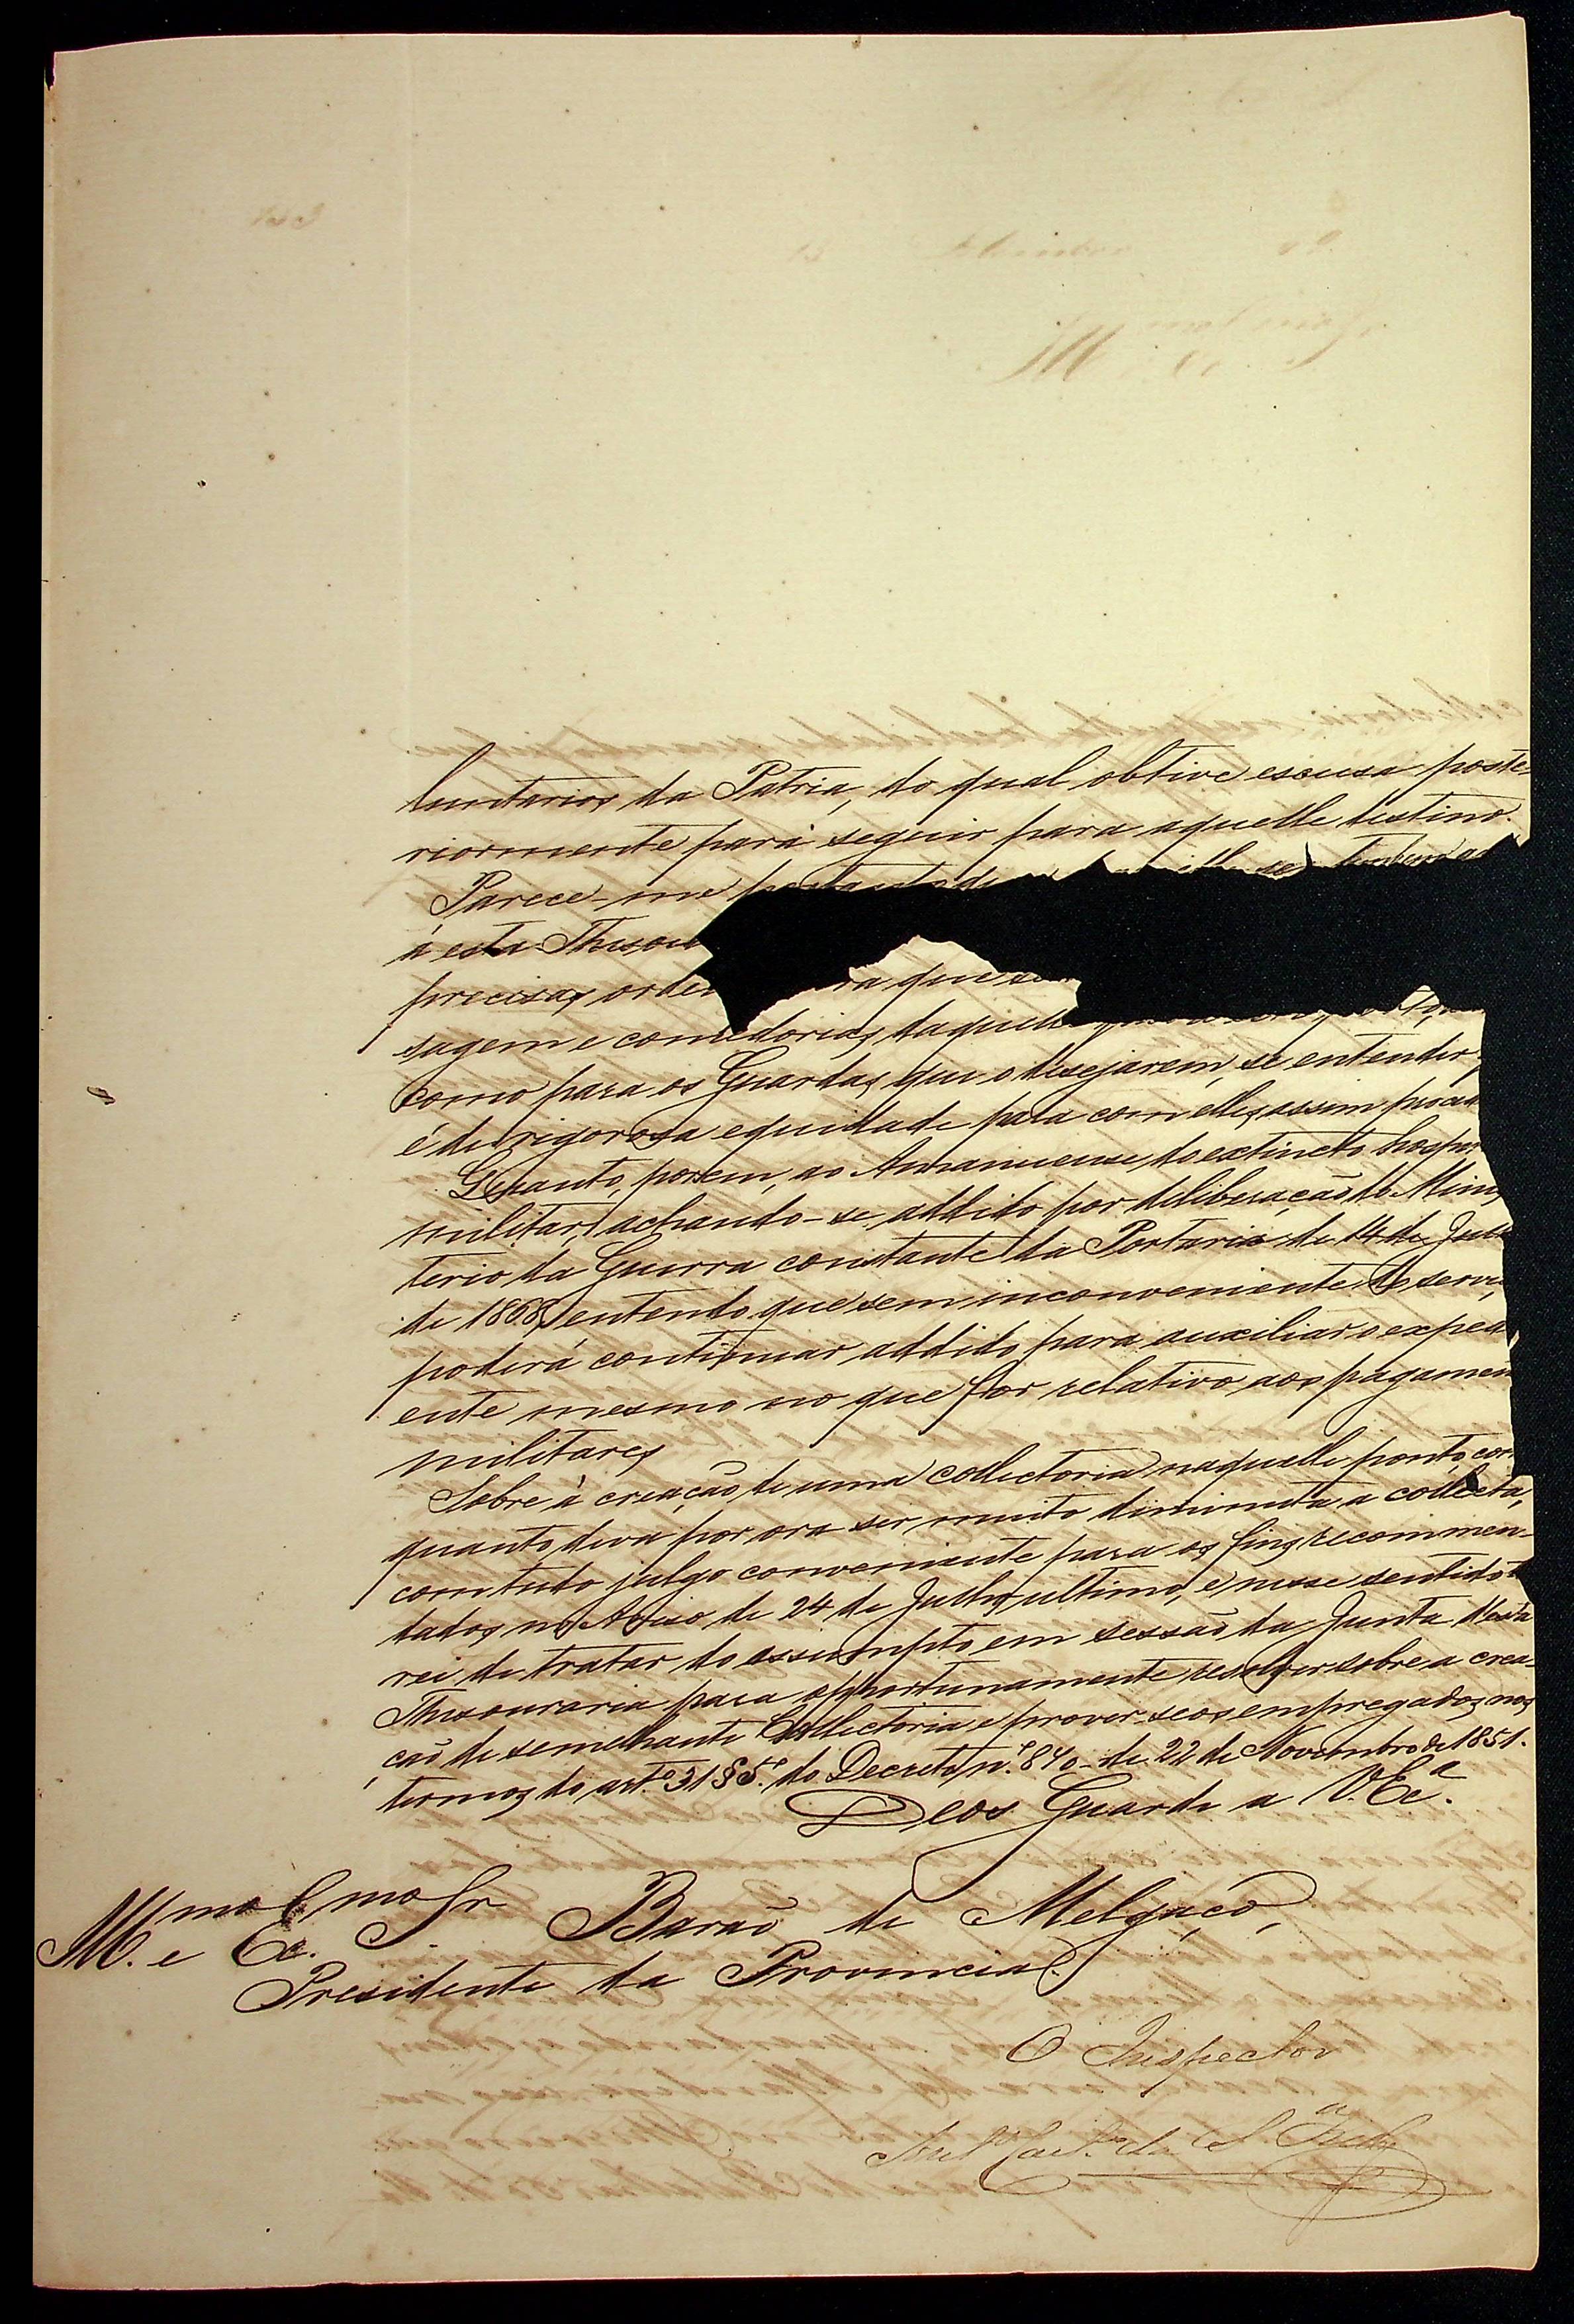 luntarios da Patria, do qual obtive escusa poste-
riormente para seguir para aquelle destino.
Parece-me portanto de
á esta Thesou
precisas orde ra que se
sagem e comedorias daquelle
como para os Guardas que o desejarem, se entender,
é de rigorosa equidade para com elles assim proced
Quanto, porem, ao Amanuense do extincto hospi
militar, achando-se addido por deliberação do Minis
terio da Guerra constante da Portaria de 14 de Julh
de 1868, entendo que sem inconveniente do servi
poderá continuar addido para auxiliar o expedi
ente mesmo no que for relativo aos pagamen
militares
Sobre à creação de uma collectoria naquelle ponto, com
quanto deva por ora ser muito diminuta a collecta,
comtudo julgo conveniente para os fins recommen-
dados no Aviso de 24 de Julho ultimo, e nesse sentido
rei de tratar do assumpto em sessão da Junta desta
Thesouraria para opportunamente resolver sobre a crea-
ção de semelhante Collectoria e prover-se os empregados nos
termos do art.º 31 § 5.º do Decreto n.º 870 de 22 de Novembro de 1851.
Deos Guarde a V. Ex.ª
Ill.mo e Ex.mo Sr. Barão de Melgaço,
Presidente da Provincia.
O Inspector